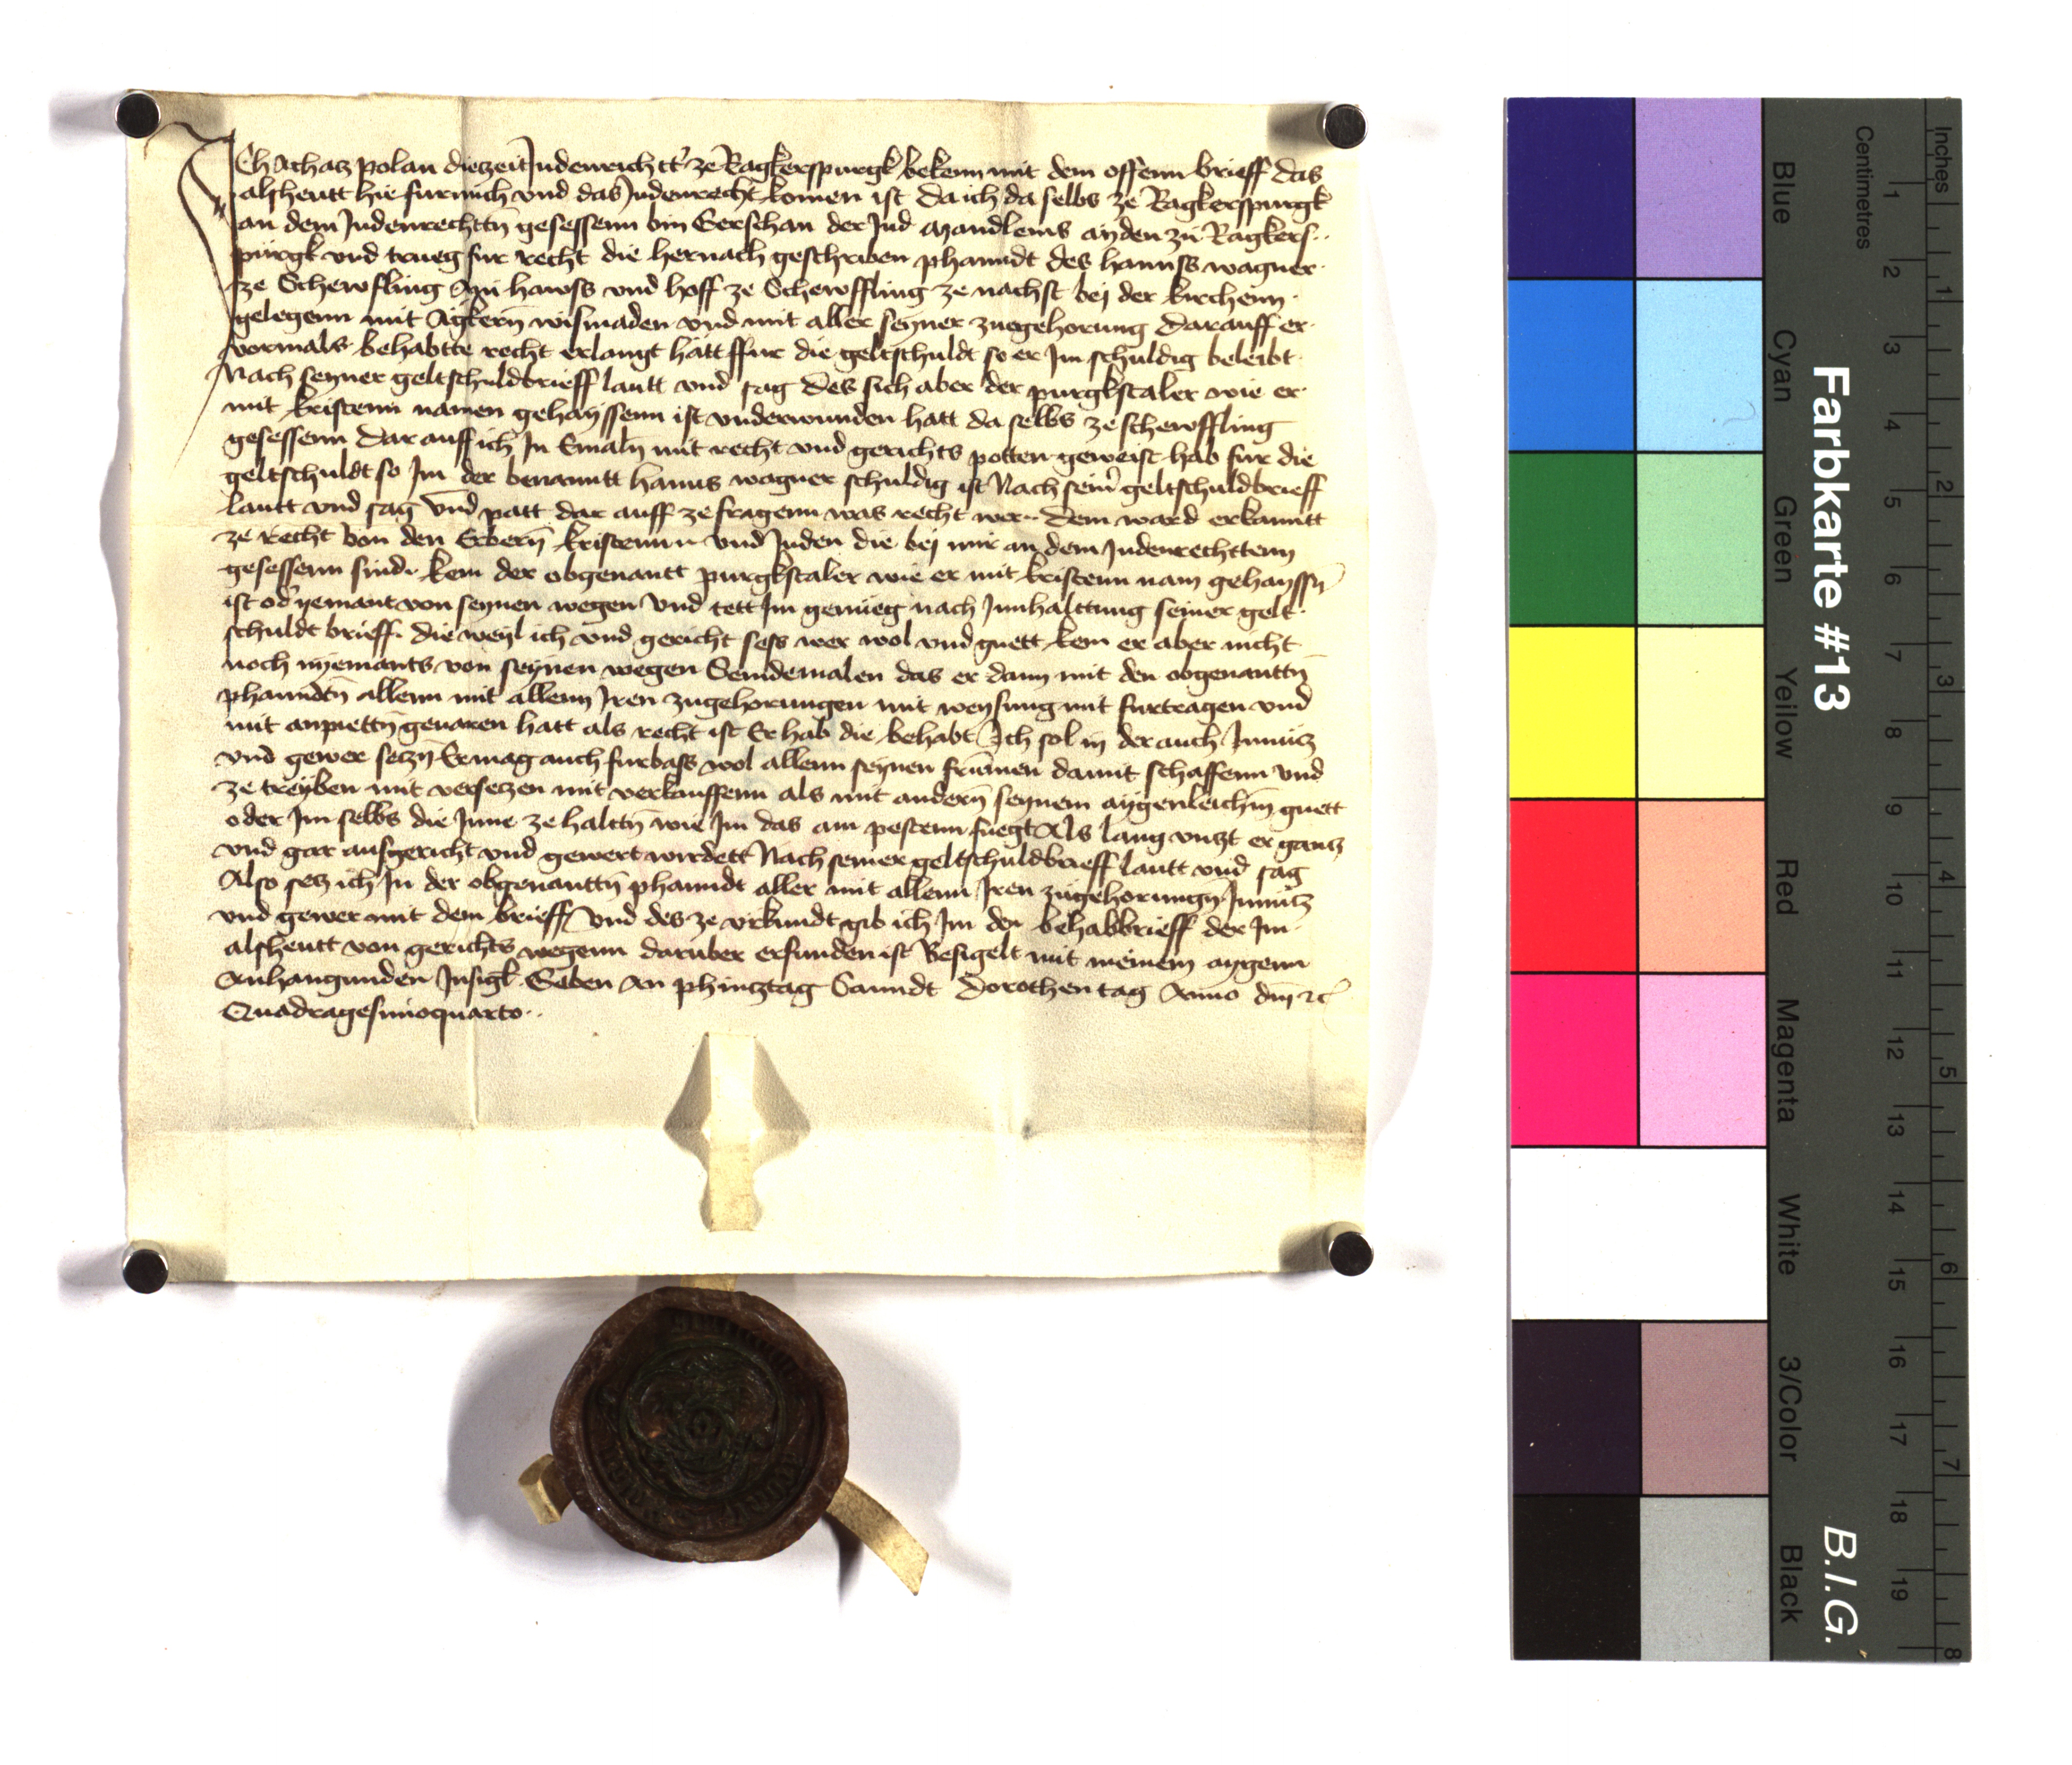 Ich Achacz Polan diezeit Judenrichtt' ze Ragkerspurgk bekenn mit dem offenn brieff das
alsheutt hie fur mich vnd das Judenrecht komen ist da ich da selbs ze Ragkerspurgk
an dem Judenrechttn̄ gesessenn bin Gerschan der Jud Mandleins ayden zu Ragkers..
purgk vnd trueg fur recht die hernach geschriben phanndt des hannss wagner
ze Scheroffling Ain hawss vnd hoff ze Scheroffling ze nachst bej der kirchenn
gelegenn mit Agkern̄ wismaden vnd mit aller seyner zuegehorung Darauff er
vormals behabtte recht erlangt hatt ffur die geltschuldt so er Im schuldig beleibt
Nach seyner geltschuldbrieff lautt vnd sag Des sich aber der purgkstaler wie er
mit kristenn namen gehayssenn ist vnderwunden hatt da selbs ze scheroffling
gesessenn Darauff ich In Emaln̄ mit recht vnd gerichts potten geweist hab fur die
geltschuldt so Im der benanntt hanns wagner schuldig ist Nach sein' geltschuldbrieff
lautt vnd sag Vnd patt dar auff ze fragenn was recht wer.. Dem ward erkanntt
ze Recht Von den Erbern̄ kristenn vnd Juden die bej mir an dem Judenrechttenn
gesessenn sind kem der obgenantt purgkstaler wie er mit kristenn nam gehayssn̄
ist od' yemant von seynen wegen Vnd tett Im genueg nach Innhalttung seiner gelt
schuldt brieff. die weyl ich vnd gericht sess wer wol vnd guett kem er aber nicht
noch nyemants von seynen wegen Seindemalen das er dann mit den obgenanttn̄
phanndtn̄ allenn mit allenn Iren zugehorungen mit weysung mit furtragen vnd
mit anpiettn̄ geuaren hatt als recht ist Er hab die behabt Ich sol in der auch Innucz
vnd gewer seczn̄ Er mag auch furbass wol allenn seynen frumen damit schaffenn Vnd
ze treyben mit verseczen mit verkauffenn als mit andern̄ seynem aygenleichn̄ guett
oder Im selbs die Inne ze halttn̄ wie Im das am pestenn fuegt Als lang vnczt er gancz
vnd gar ausgericht vnd gewert wirdett Nach seiner geltschuldbrieff lautt vnd sag
Also secz ich In der obgenanttn̄ phanndt aller mit allenn Iren zugehorungn̄ Innucz
vnd gewer mit dem brieff Vnd des ze vrkundt gib ich Im den behabbrieff der Im
alsheutt von gerichts wegenn daruber erfunden ist Besigelt mit meinem aygenn
Anhangunden Insigl. Geben An phincztag Sanndt Dorothen tag Anno dn̄i ꝛc
Quadragesimoquarto..
Farbkarte #13
B.I.G.
Blue
Cyan
Green
Yellow
Red
Magenta
White
3/Color
Black
Centimetres
1 2 3 4 5 6 7 8 9 10 11 12 13 14 15 16 17 18 19
Inches
1 2 3 4 5 6 7 8